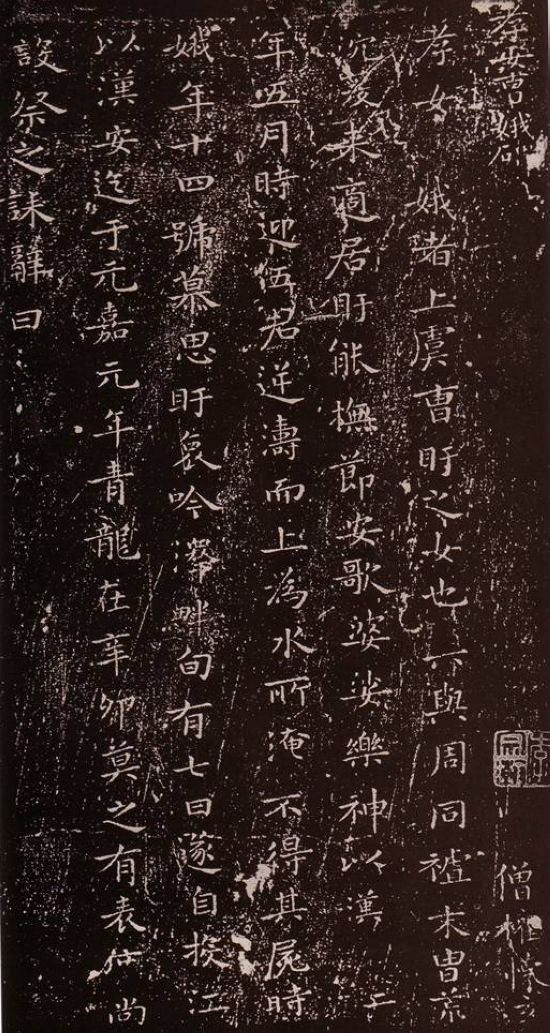 孝女曹娥碑
僧權
孝女 娥者上虞曹盱之女也 與周同祖末胄荒
沉爰来適居盱能撫節安歌婆娑樂神以漢 二
年五月時迎伍君逆濤而上為水所淹不得其屍時
娥年十四號慕思盱哀吟澤畔旬有七日遂自投江
以漢安迄于元嘉元年青龍在辛卯莫之有表 尚
設祭之誄辭曰